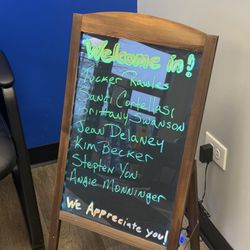 Welcome in!
Tucker Rawles
Sandi Contellasi
Brittany Swanson
Jean Delaney
Kim Becker
Stepten Yon
Angie Monninger
We Appreciate you!